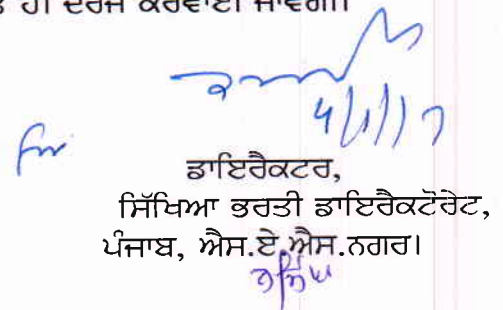 ਹੀ ਦਰਜ ਕਰਵਾਈ ਜਾਵੇਗੀ।
4/1/17
for
ਡਾਇਰੈਕਟਰ,
ਸਿੱਖਿਆ ਭਰਤੀ ਡਾਇਰੈਕਟੋਰੇਟ,
ਪੰਜਾਬ, ਐਸ.ਏ.ਐਸ.ਨਗਰ।